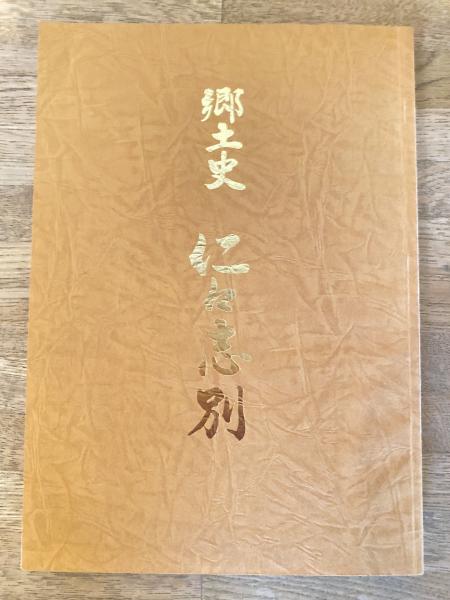 郷土史 仁々志別